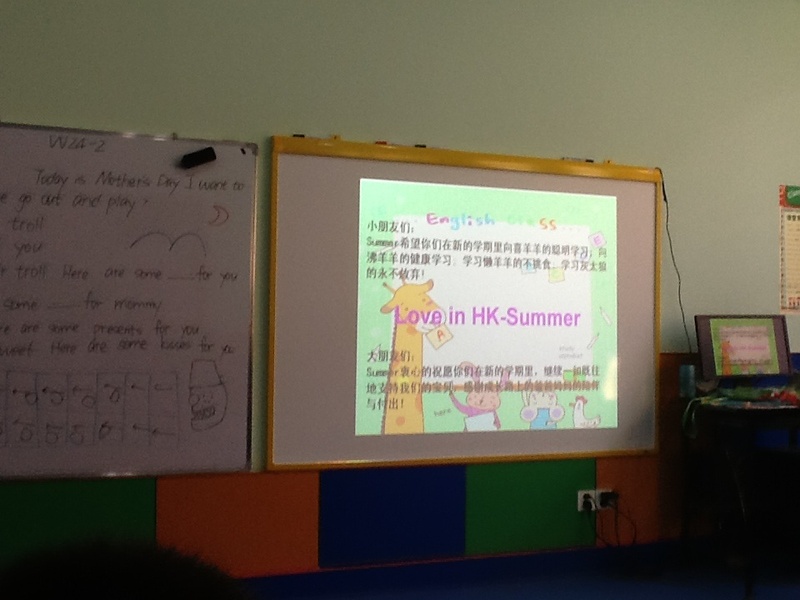 W24-2
Today is Mother's Day I want to
go out and play?
troll
you
troll Here are some ___ for you
some ___ for mommy
are some presents for you
Here are some kisses for you
English
小朋友们：
Summer希望你们在新的学期里向喜羊羊的聪明学习，向
沸羊羊的健康学习，学习懒羊羊的不挑食，学习灰太狼
的永不放弃！
Love in HK-Summer
A
大朋友们：
Summer衷心的祝愿你们在新的学期里，继续一如既往
地支持我们的宝贝，感谢成长路上的爸爸妈妈的陪伴
与付出！
here